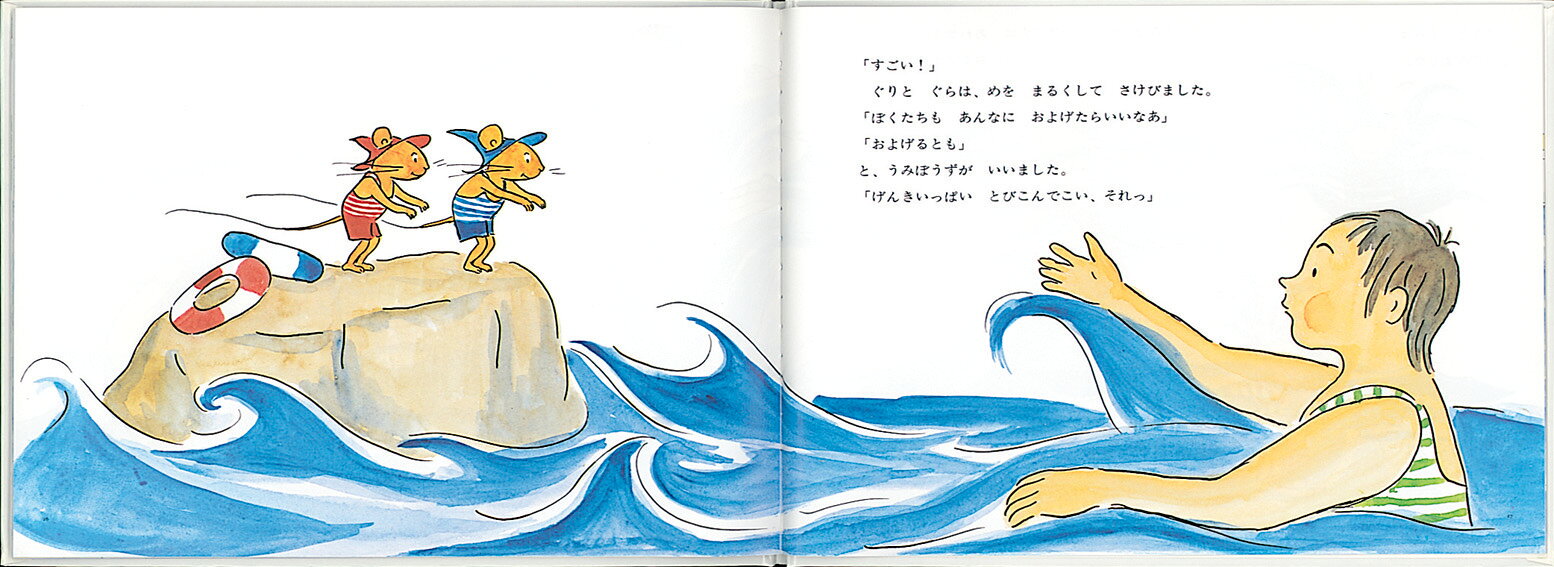 「すごい！」
ぐりと　ぐらは、めを　まるくして　さけびました。
「ぼくたちも　あんなに　およげたらいいなあ」
「およげるとも」
と、うみぼうずが　いいました。
「げんきいっぱい　とびこんでこい、それっ」